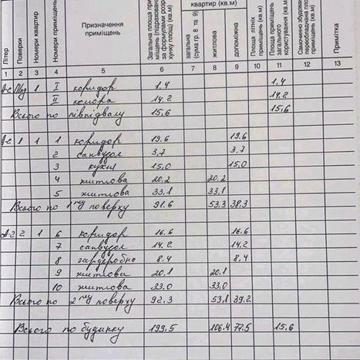 Літер | Поверхи | Номери квартир | Номери приміщень | Призначення приміщень | Загальна площа квартир (кв.м) | житлова | допоміжна | Площа літніх приміщень (кв.м) | Площа приміщень загального користування (кв.м) | Примітка
1 2 3 4 5 6 7 8 9 10 11 12 13
1 I коридор 1.4 1.4
II комора 14.2 14.2
Всього по підвалу 15.6 15.6
1 1 1 коридор 19.6 19.6
2 санвузол 3.7 3.7
3 кухня 15.0 15.0
4 житлова 20.2 20.2
5 житлова 33.1 33.1
Всього по 1му поверху 91.6 53.3 38.3
2 1 6 коридор 16.6 16.6
7 санвузол 14.2 14.2
8 гардеробна 8.4 8.4
9 житлова 20.1 20.1
10 житлова 33.0 33.0
Всього по 2му поверху 92.3 53.1 39.2
Всього по будинку 199.5 106.4 77.5 15.6